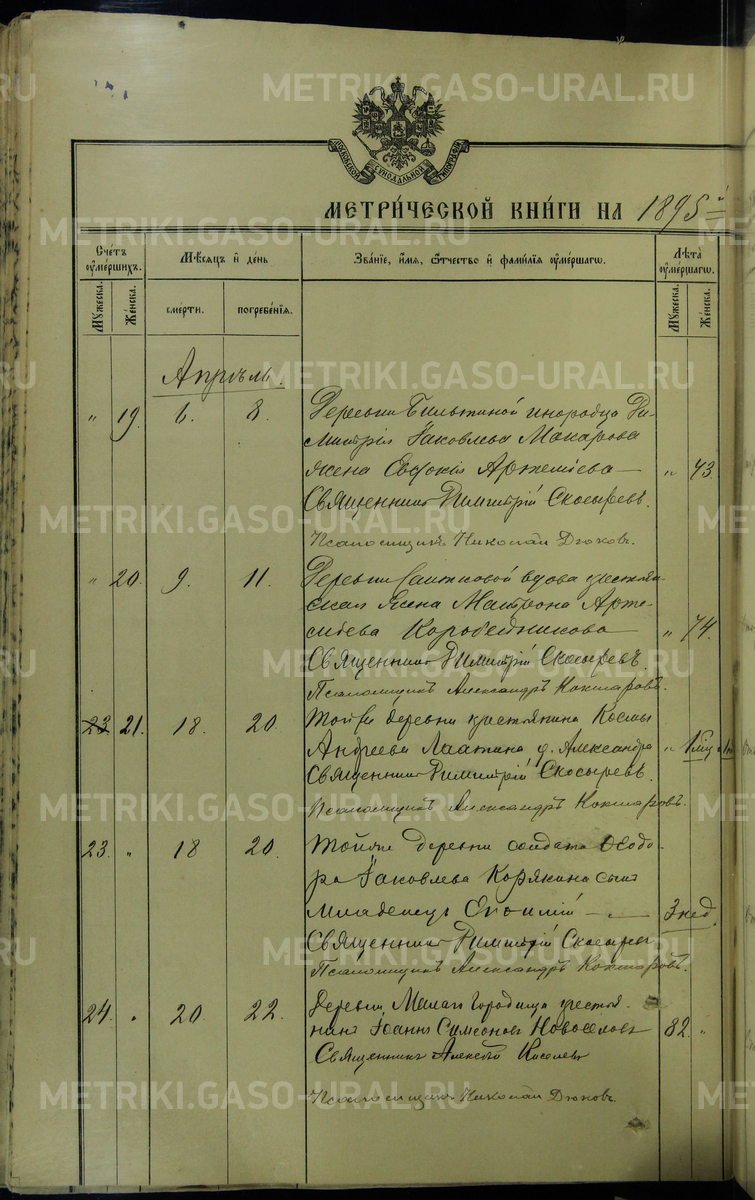 METRIKI.GASO-URAL.RU
МОСКОВСКОЙ СѴНОДАЛЬНОЙ ТИПОГРАФІИ
МЕТРИ́ЧЕСКОЙ КНИ́ГИ НА 1895 й
Сче́тъ ᲂу҆ме́ршихъ.
Мѣ́сяцъ и҆ де́нь
Зва́нїе, и҆́мя, ѻ҆́тчество и҆ фами́лїя ᲂу҆ме́ршагѡ.
Лѣ́та ᲂу҆ме́ршагѡ.
Мꙋ́жеска. Же́нска. сме́рти. погребе́нїя. Мꙋ́жеска. Же́нска.
Апрѣль.
" 19. 6. 8. Деревни Бильтиной инородца Ди-
митрія Іаковлева Макарова
жена Евдокія Артеміева — " 43.
Священникъ Димитрій Скосыревъ.
Псаломщикъ Николай Дюковъ.
" 20. 9. 11. Деревни вдова крестья-
ская жена Матрона Арте-
міева Коробейникова " 74.
Священникъ Димитрій Скосыревъ.
Псаломщикъ Александръ Кокшаровъ.
23 21. 18. 20. Той же деревни крестьянина Космы
Андреева д. Александра "
Священникъ Димитрій Скосыревъ.
Псаломщикъ Александръ Кокшаровъ.
23. " 18 20. Той же деревни солдата Ѳеодо-
ра Іаковлева Корякина сынъ
младенецъ — 3 нед.
Священникъ Димитрій Скосыревъ
Псаломщикъ Александръ Кокшаровъ.
24. " 20 22. Деревни Малаго Городища крестья-
нинъ Іоаннъ Симеоновъ Новоселовъ 82. "
Священникъ Алексій Киселевъ
Псаломщикъ Николай Дюковъ.